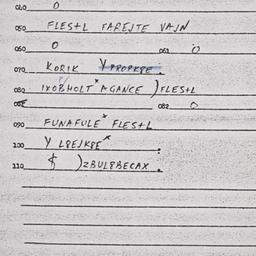 040 O
050 FLES+L FAREJTE VAJN
060 O 061 O
070 KORIK Y PROPKBE.
080 IXOBHOLT* AGANCE )FLES+L
082 O
090 FUNAFULE* FLES+L
100 Y LBEJKBE*
110 )ZBULBBECAX.